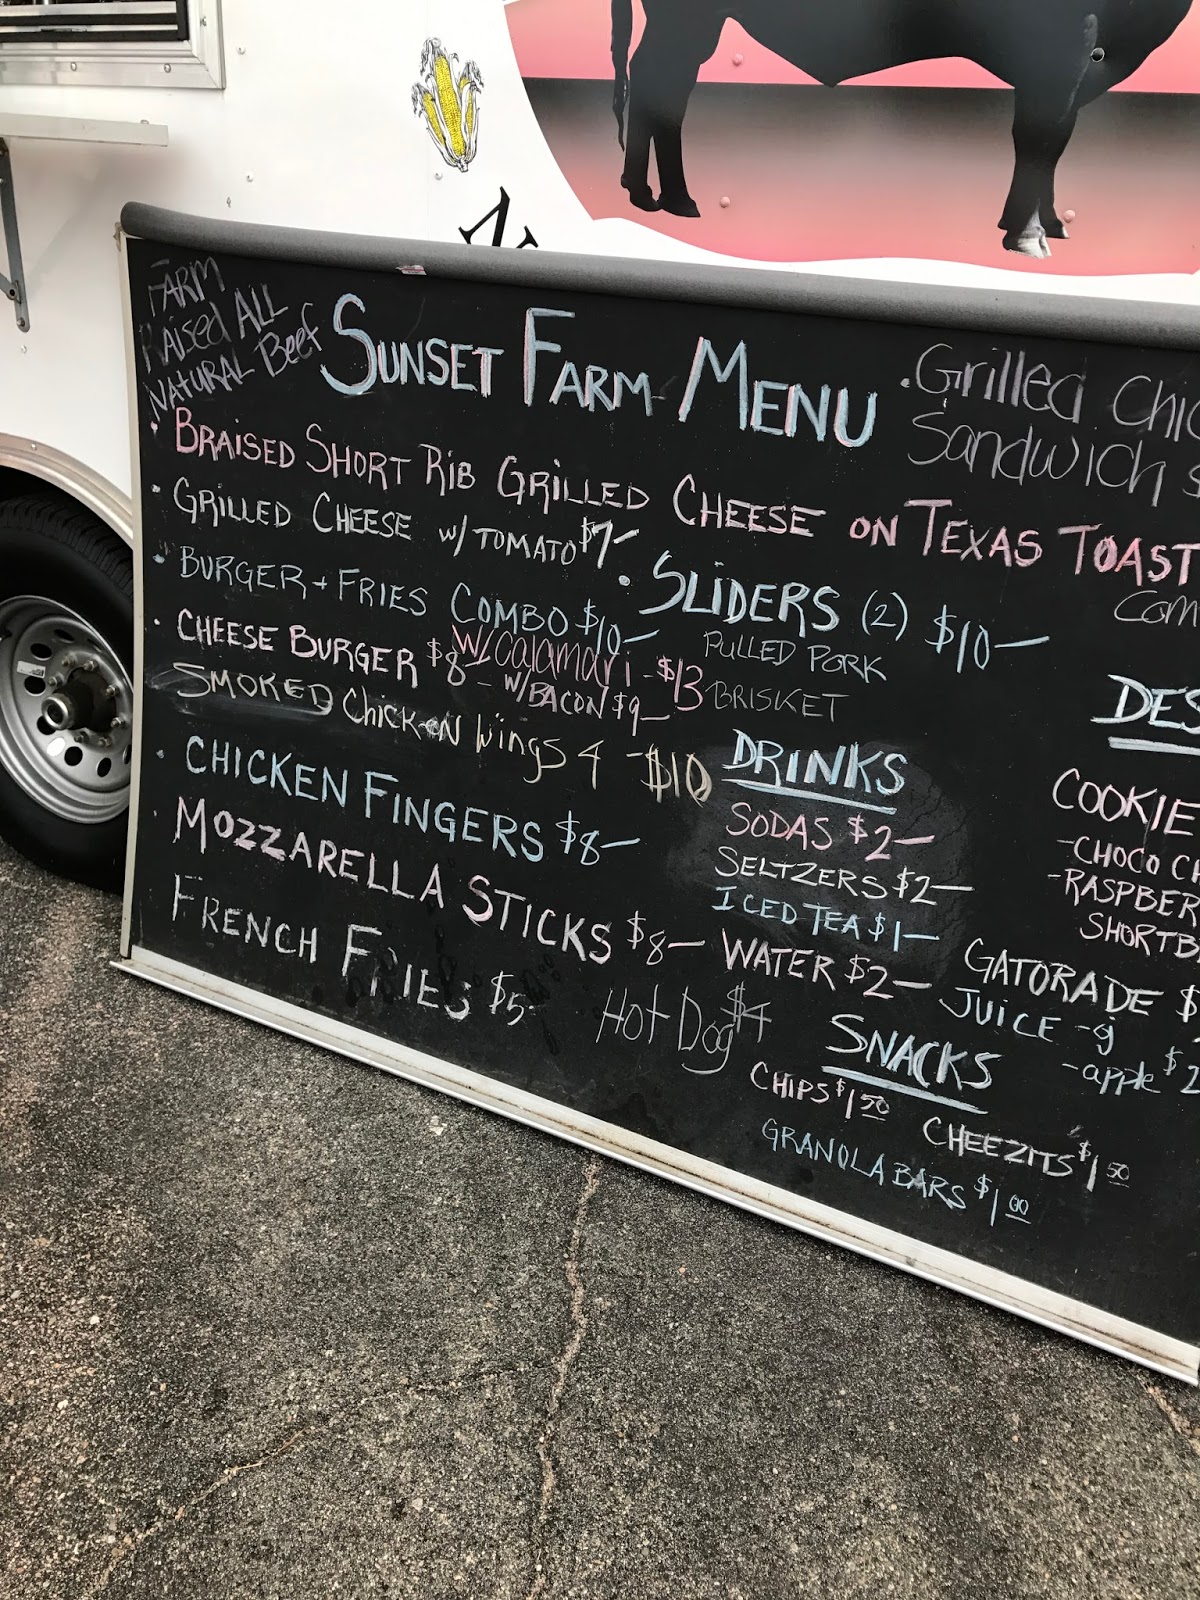 FARM
Raised ALL
NATURAL Beef
SUNSET FARM MENU
• Grilled Chic
Sandwich $
• BRAISED SHORT RIB GRILLED CHEESE ON TEXAS TOAST
Com
• GRILLED CHEESE w/ TOMATO $7-
• BURGER + FRIES COMBO $10-
w/ calamari - $13
• CHEESE BURGER $8- w/BACON $9-
SMOKED Chicken Wings 4 - $10
• CHICKEN FINGERS $8-
• MOZZARELLA STICKS $8-
FRENCH FRIES $5-
Hot Dog $4
• SLIDERS (2) $10-
PULLED PORK
BRISKET
DRINKS
SODAS $2-
SELTZERS $2-
ICED TEA $1-
WATER $2-
GATORADE $
JUICE - g
- apple $2
SNACKS
CHIPS $1.50
CHEEZITS $1.50
GRANOLA BARS $1.00
DES
COOKIE
- CHOCO CH
- RASPBER
SHORTB